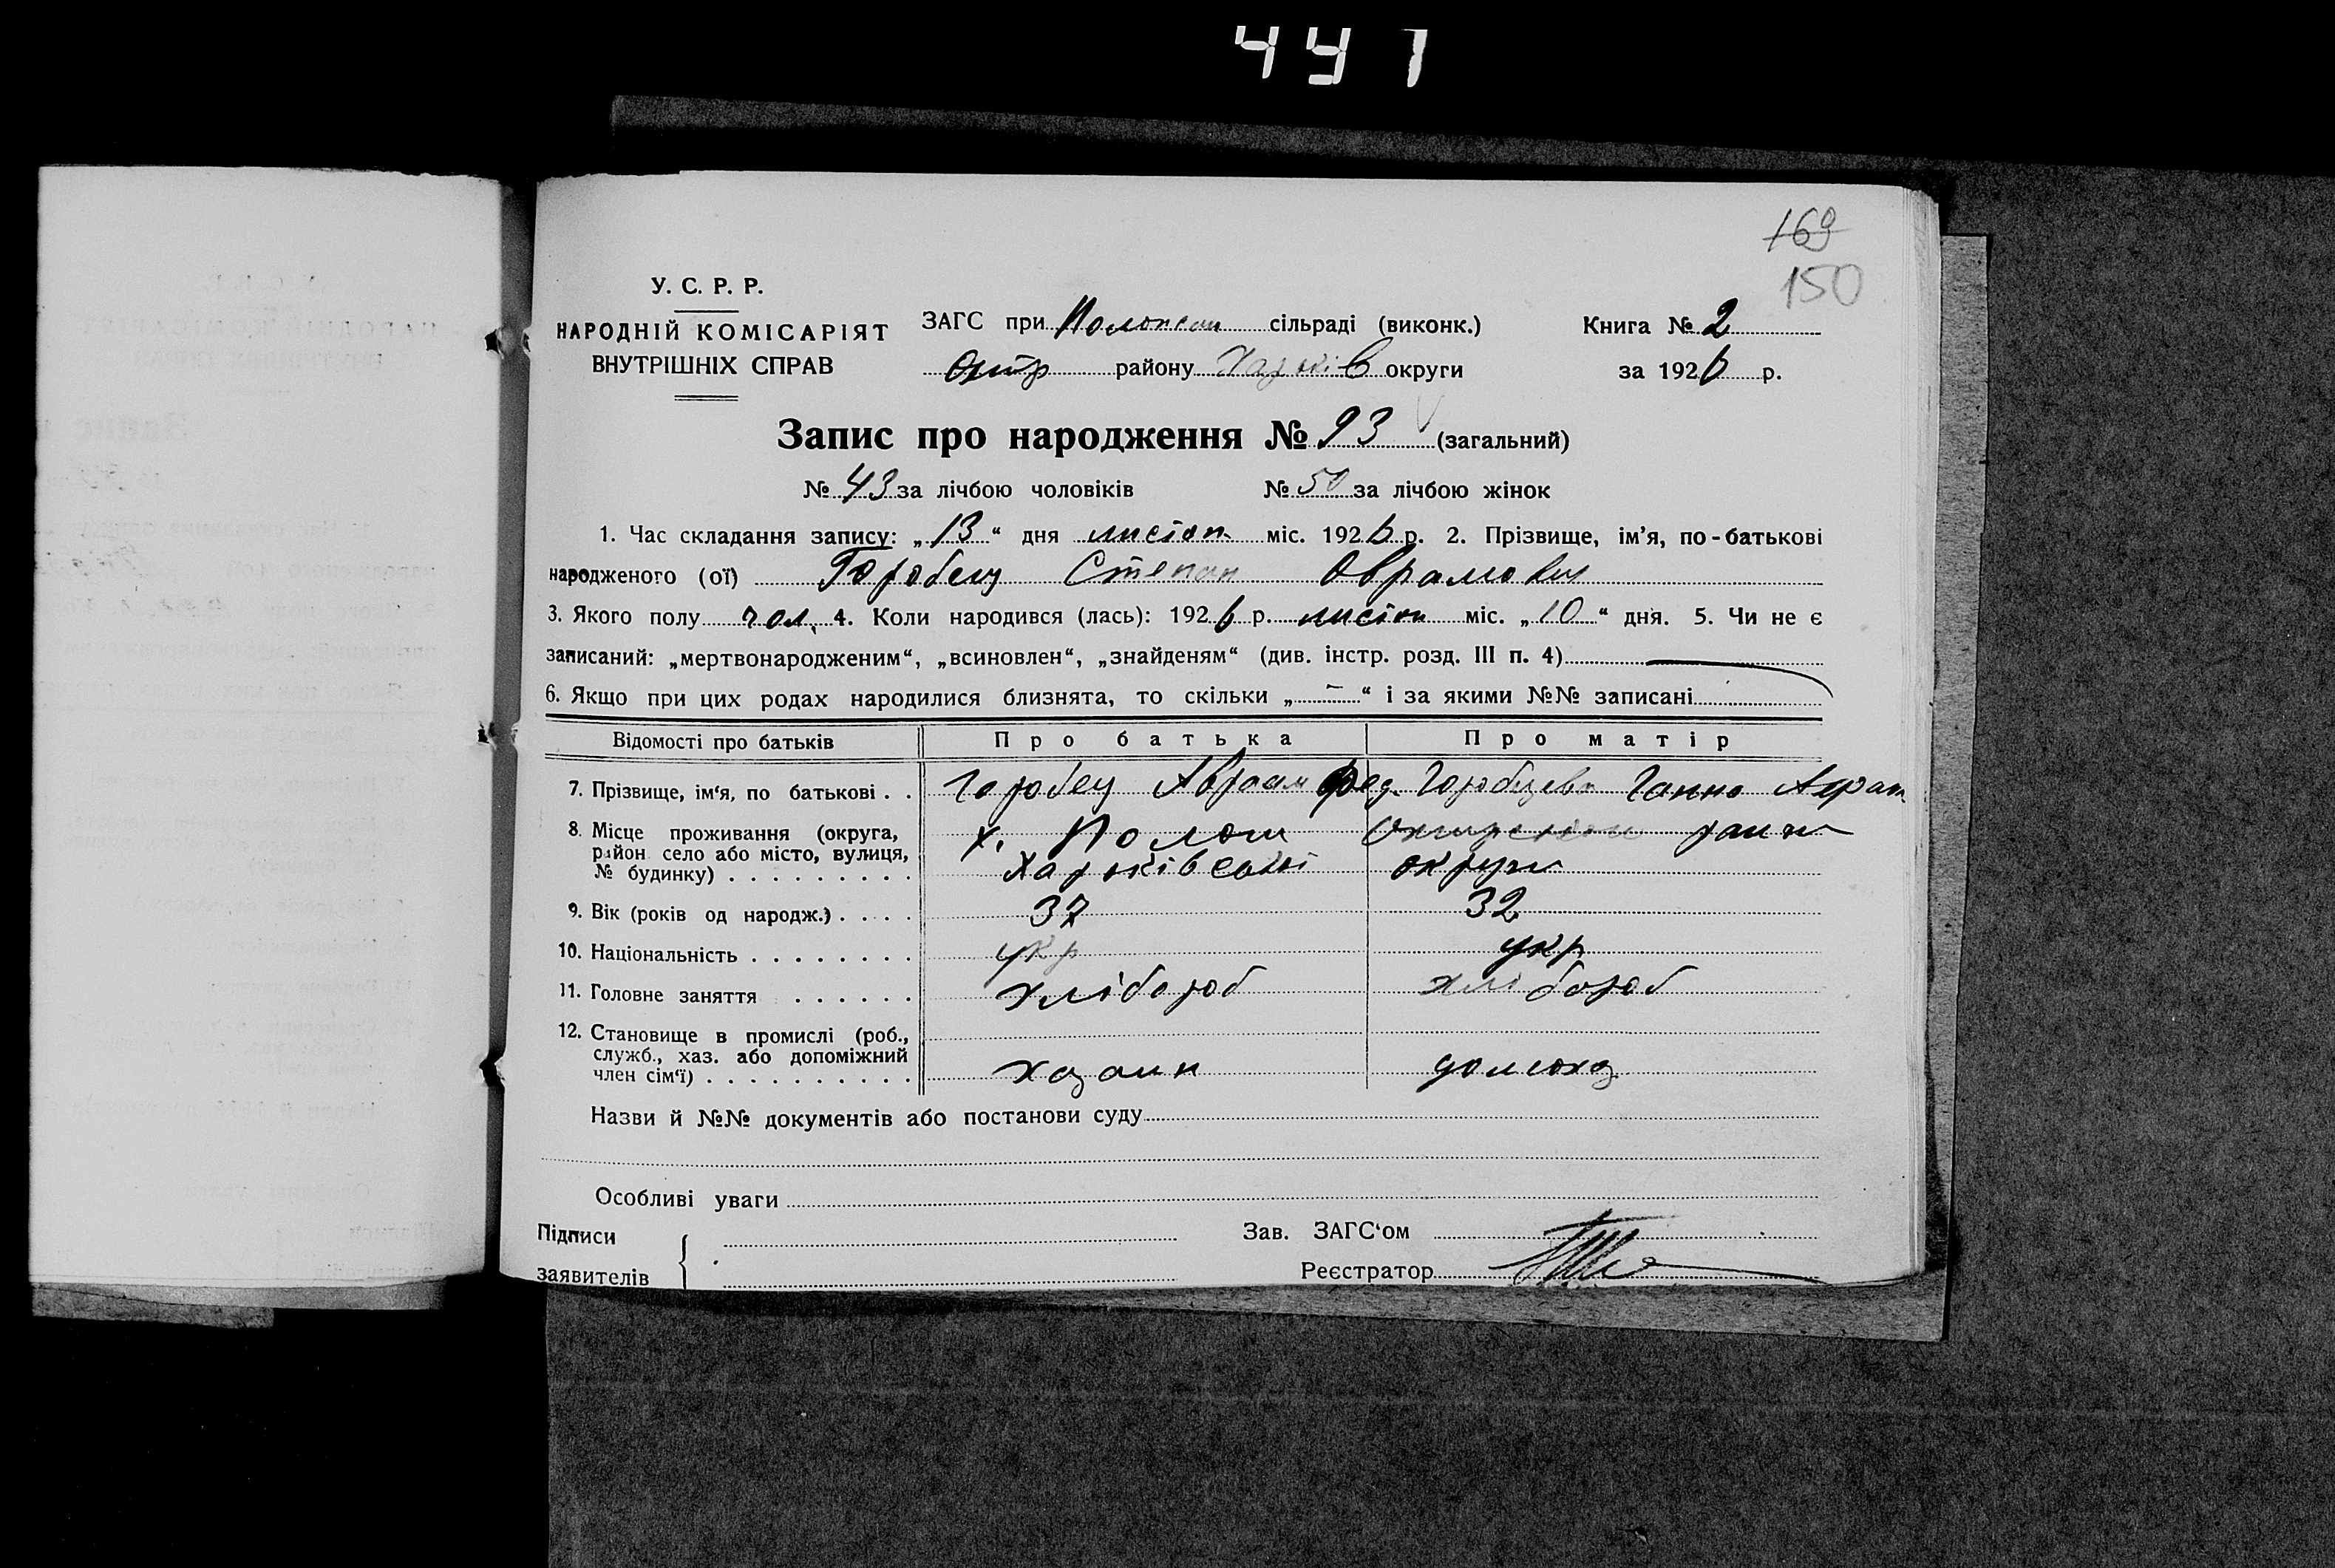 441
169
150
У. С. Р. Р.
НАРОДНІЙ КОМІСАРІЯТ
ВНУТРІШНІХ СПРАВ
ЗАГС при сільраді (виконк.)
району Харків округи
Книга № 2
за 1926 р.
Запис про народження № 93 (загальний)
№ 43 за лічбою чоловіків № 50 за лічбою жінок
1. Час складання запису: „13“ дня листоп міс. 1926 р. 2. Прізвище, ім'я, по-батькові
народженого (ої) Горобець Степан Оврамович
3. Якого полу чол. 4. Коли народився (лась): 1926 р. листоп міс. „10“ дня. 5. Чи не є
записаний: „мертвонародженим“, „всиновлен“, „знайденям“ (див. інстр. розд. III п. 4)
6. Якщо при цих родах народилися близнята, то скільки „–“ і за якими №№ записані
Відомості про батьків Про батька Про матір
7. Прізвище, ім'я, по батькові . . Горобец Авраам Фед. Горобцева Ганна
8. Місце проживання (округа, район село або місто, вулиця, № будинку) . . . . . . . . . х.
Харківської округи
9. Вік (років од народж.) . . . . 37 32
10. Національність . . . . . . . . укр укр
11. Головне заняття . . . . . . хлібороб хлібороб
12. Становище в промислі (роб., служб., хаз. або допоміжний член сім'ї) . . . . . . . . . . хазаин домохоз
Назви й №№ документів або постанови суду
Особливі уваги
Підписи
заявителів
Зав. ЗАГС'ом
Реєстратор